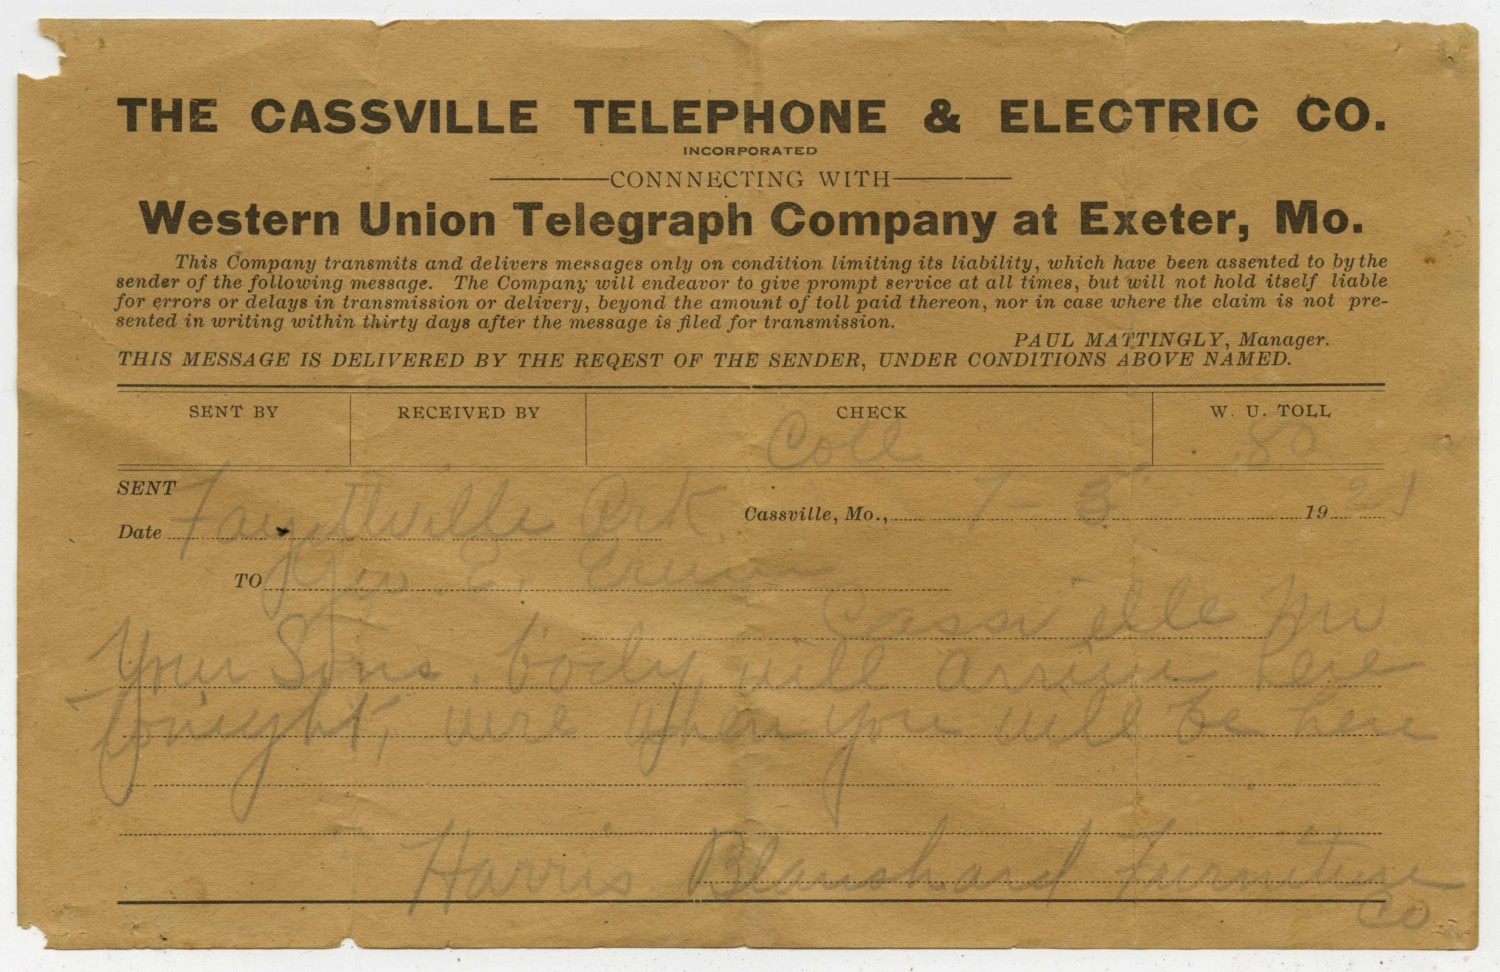 THE CASSVILLE TELEPHONE & ELECTRIC CO.
INCORPORATED
CONNNECTING WITH
Western Union Telegraph Company at Exeter, Mo.
This Company transmits and delivers messages only on condition limiting its liability, which have been assented to by the
sender of the following message. The Company will endeavor to give prompt service at all times, but will not hold itself liable
for errors or delays in transmission or delivery, beyond the amount of toll paid thereon, nor in case where the claim is not pre-
sented in writing within thirty days after the message is filed for transmission.
PAUL MATTINGLY, Manager.
THIS MESSAGE IS DELIVERED BY THE REQEST OF THE SENDER, UNDER CONDITIONS ABOVE NAMED.
SENT BY RECEIVED BY CHECK W. U. TOLL
Coll .80
SENT
Date Fayettville Ark Cassville, Mo., 7-3 1921
TO Geo. E.
Cassville Mo
Your Sons body will arrive here
tonight, wire when you will be here
Harris Blanshard Furniture
Co